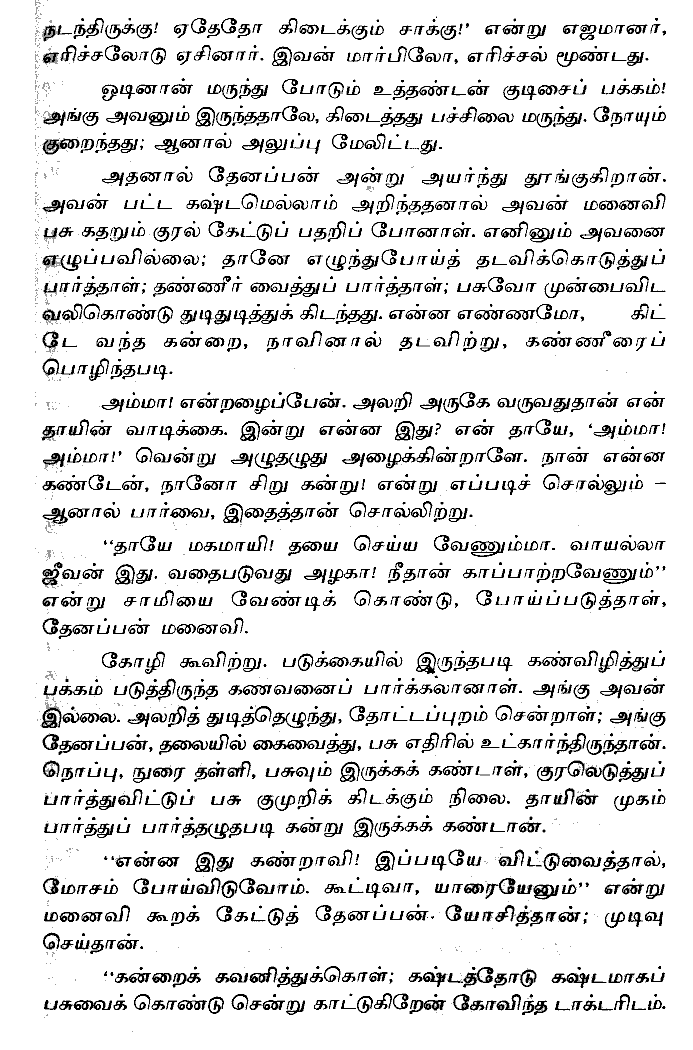 நடந்திருக்கு! ஏதேதோ கிடைக்கும் சாக்கு!’ என்று எஜமானர்,
எரிச்சலோடு ஏசினார். இவன் மார்பிலோ, எரிச்சல் மூண்டது.
ஒடினான் மருந்து போடும் உத்தண்டன் குடிசைப் பக்கம்!
அங்கு அவனும் இருந்ததாலே, கிடைத்தது பச்சிலை மருந்து. நோயும்
குறைந்தது; ஆனால் அலுப்பு மேலிட்டது.
அதனால் தேனப்பன் அன்று அயர்ந்து தூங்குகிறான்.
அவன் பட்ட கஷ்டமெல்லாம் அறிந்ததனால் அவன் மனைவி
பசு கதறும் குரல் கேட்டுப் பதறிப் போனாள். எனினும் அவனை
எழுப்பவில்லை; தானே எழுந்துபோய்த் தடவிக்கொடுத்துப்
பார்த்தாள்; தண்ணீர் வைத்துப் பார்த்தாள்; பசுவோ முன்பைவிட
வலிகொண்டு துடிதுடித்துக் கிடந்தது. என்ன எண்ணமோ, கிட்
டே வந்த கன்றை, நாவினால் தடவிற்று, கண்ணீரைப்
பொழிந்தபடி.
அம்மா! என்றழைப்பேன். அலறி அருகே வருவதுதான் என்
தாயின் வாடிக்கை. இன்று என்ன இது? என் தாயே, ‘அம்மா!
அம்மா!’ வென்று அழுதழுது அழைக்கின்றாளே. நான் என்ன
கண்டேன், நானோ சிறு கன்று! என்று எப்படிச் சொல்லும் –
ஆனால் பார்வை, இதைத்தான் சொல்லிற்று.
‘‘தாயே மகமாயி! தயை செய்ய வேணும்மா. வாயல்லா
ஜீவன் இது. வதைபடுவது அழகா! நீதான் காப்பாற்றவேணும்’’
என்று சாமியை வேண்டிக் கொண்டு, போய்ப்படுத்தாள்,
தேனப்பன் மனைவி.
கோழி கூவிற்று. படுக்கையில் இருந்தபடி கண்விழித்துப்
பக்கம் படுத்திருந்த கணவனைப் பார்க்கலானாள். அங்கு அவன்
இல்லை. அலறித் துடித்தெழுந்து, தோட்டப்புறம் சென்றாள்; அங்கு
தேனப்பன், தலையில் கைவைத்து, பசு எதிரில் உட்கார்ந்திருந்தான்.
நொப்பு, நுரை தள்ளி, பசுவும் இருக்கக் கண்டாள், குரலெடுத்துப்
பார்த்துவிட்டுப் பசு குமுறிக் கிடக்கும் நிலை. தாயின் முகம்
பார்த்துப் பார்த்தழுதபடி கன்று இருக்கக் கண்டான்.
‘‘என்ன இது கண்றாவி! இப்படியே விட்டுவைத்தால்,
மோசம் போய்விடுவோம். கூட்டிவா, யாரையேனும்’’ என்று
மனைவி கூறக் கேட்டுத் தேனப்பன் யோசித்தான்; முடிவு
செய்தான்.
‘‘கன்றைக் கவனித்துக்கொள்; கஷ்டத்தோடு கஷ்டமாகப்
பசுவைக் கொண்டு சென்று காட்டுகிறேன் கோவிந்த டாக்டரிடம்.